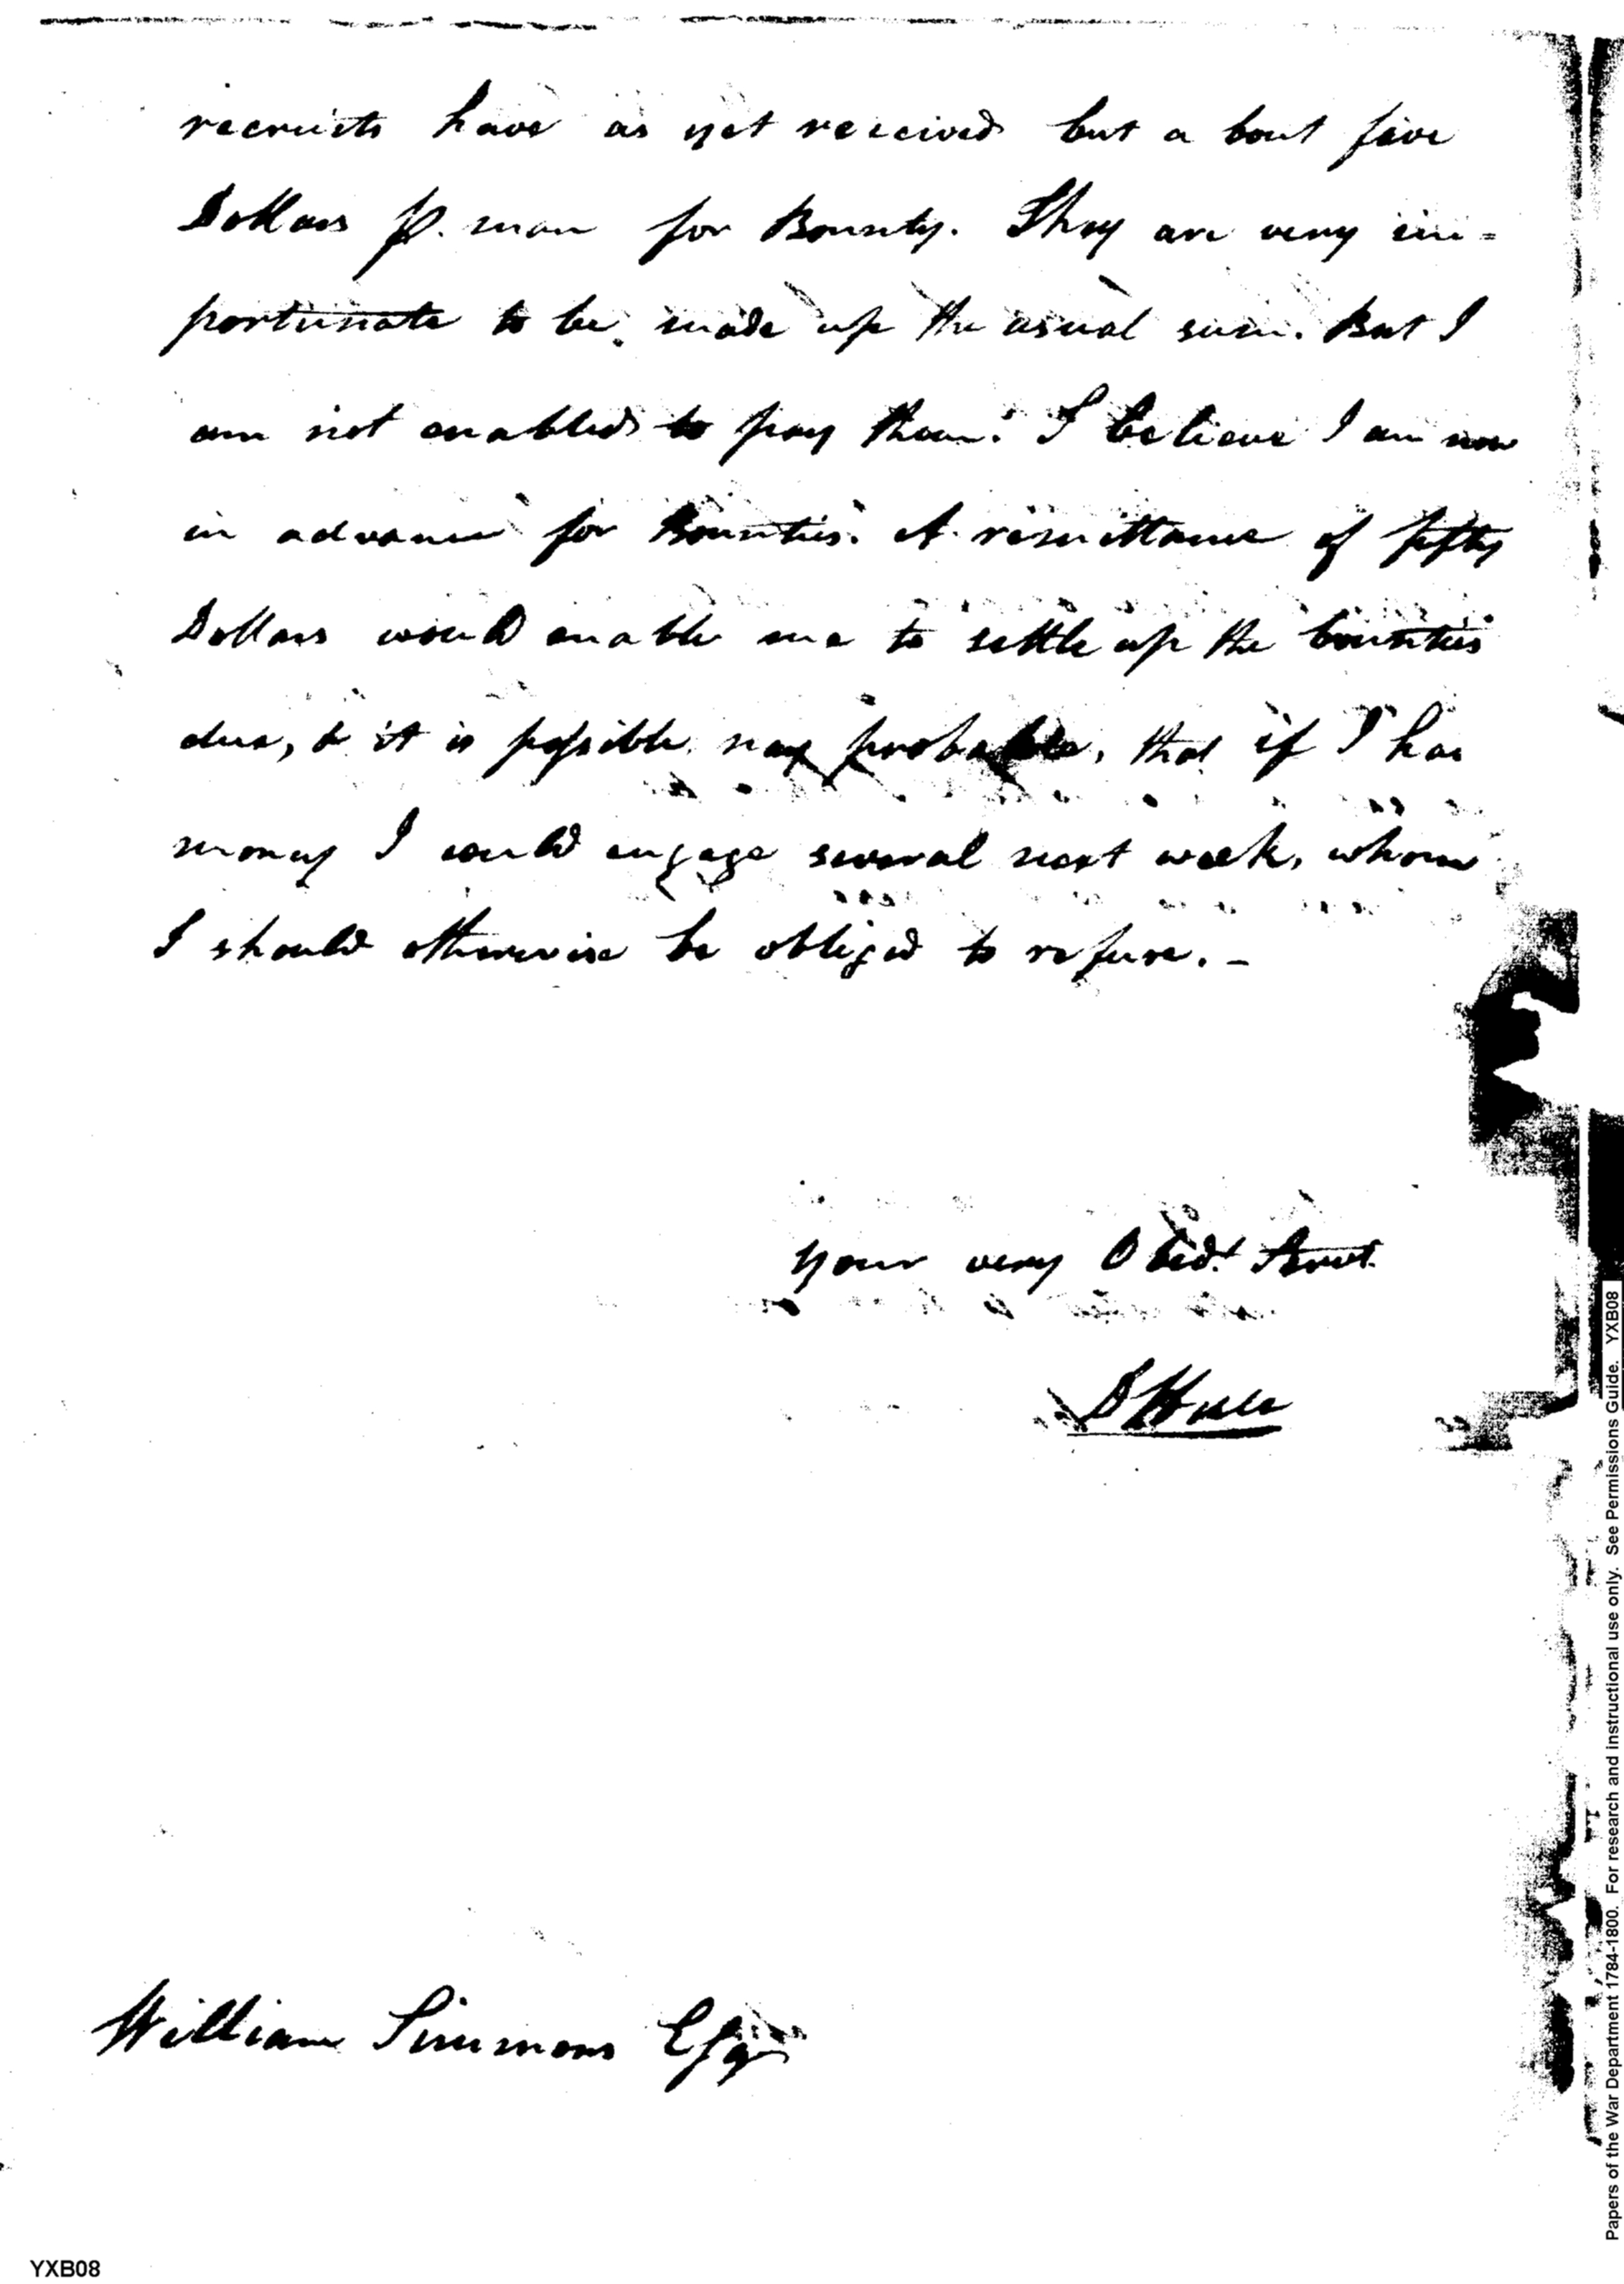 recruits have as yet received but a bout five
Dollars p. man for Bounty. They are very im=
portunate to be made up the usual sum. But I
am not enabled to pay them. I believe I am now
in advance for Bounties. A remittance of fifty
Dollars would enable me to settle up the bounties
due, & it is possible nay probable, that if I had
money I could engage several next week, whom
I should otherwise be obliged to refuse. –
Your very Obedt. Servt.
William Simmons Esqr
YXB08
Papers of the War Department 1784-1800. For research and instructional use only. See Permissions Guide. YXB08